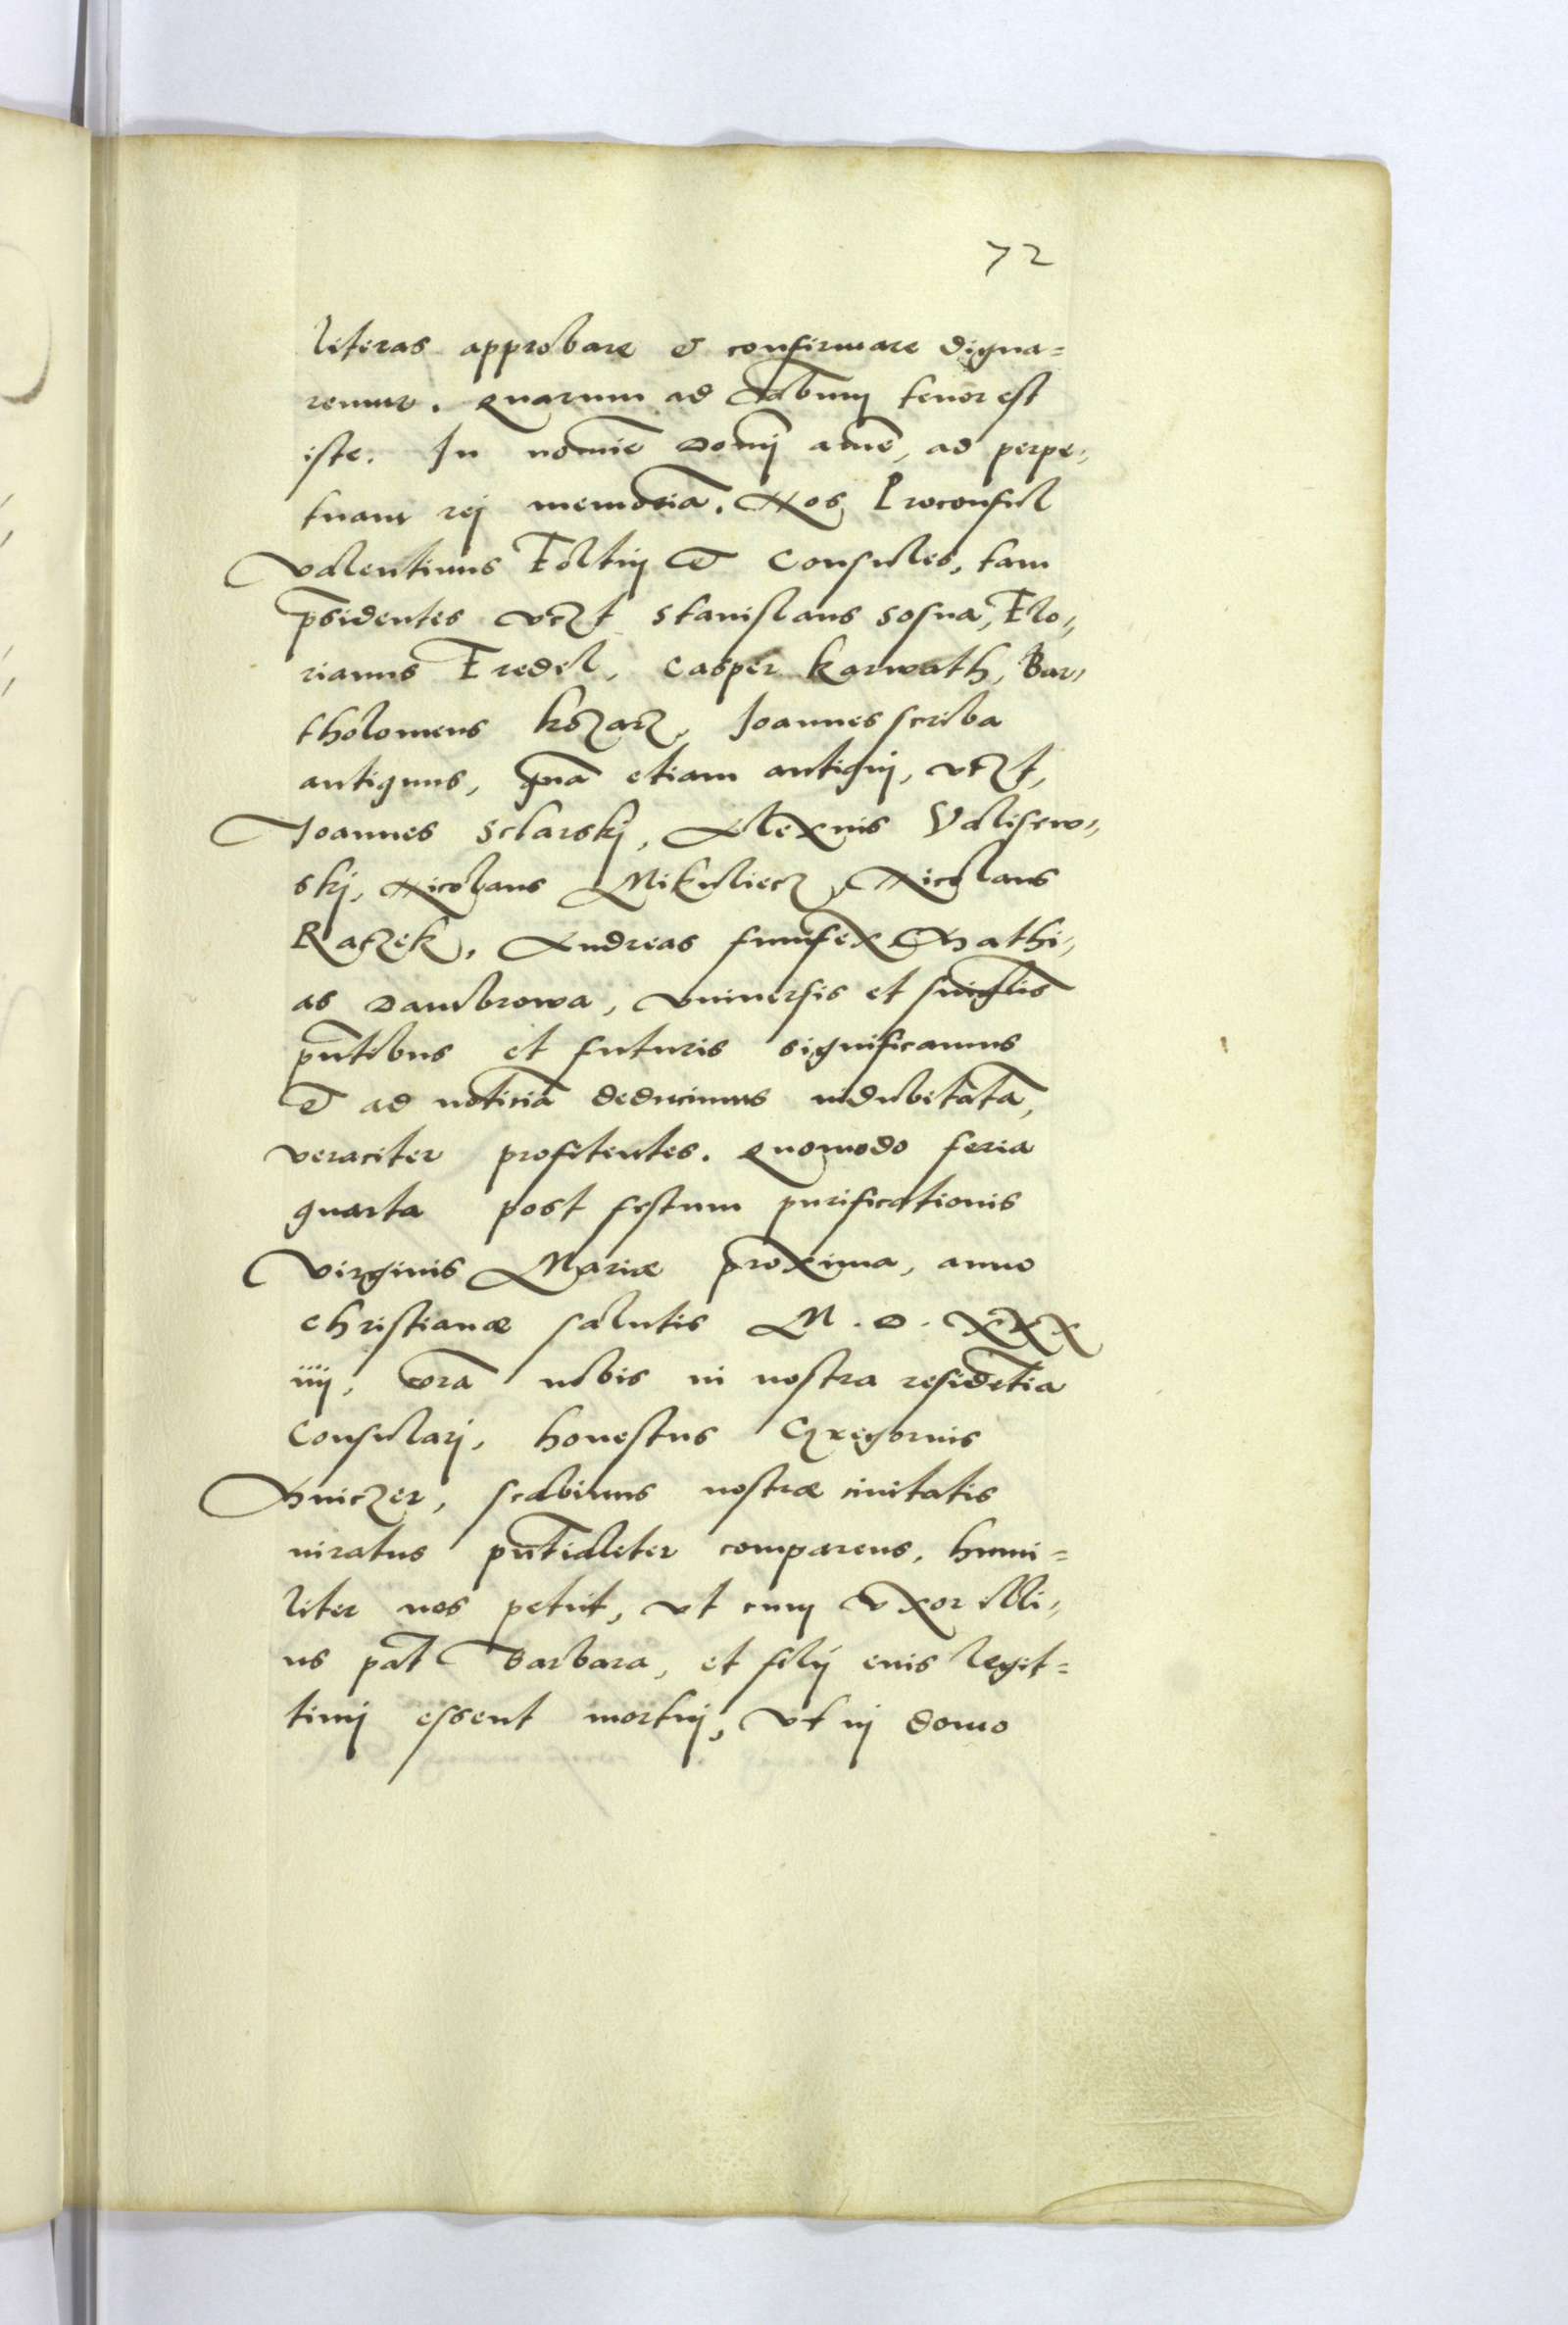 72
literas approbare & confirmare digna=
remur. Quarum ad vĕrbum tenor est
iste. In nomīe Domī amē, ad perpe=
tuam rej memoriā. Nos Proconsul
Valentinus Foltin & Consules, tam
p̄sidentes vczt Stanislaus Sosna, Flo=
rianus Fredel, Casper Karwath, Bar=
tholomeus kozarz, Joannes scriba
antiquus, quā etiam antiquj, vczt,
Joannes Sclarskj, Alexius Valisew=
skj, Nicolaus Mikuliecz, Nicolaus
Raczek, Andreas funifex Mathi=
as Dambrowa, vniuersis et singlis
pn̄tibus et futuris significamus
& ad noticiā deducimus indubitatā,
veraciter profitentes. Quomodo feria
quarta post festum purificationis
Virginis Mariæ proxima, anno
christianæ salutis M. D. XXX
iiij, corā nobis in nostra residētia
Consularj, honestus Gregorius
Hniczer, scabinus nostræ ciuitatis
iuratus pn̄tialiter comparens, humi=
liter nos petijt, vt cum vxor illi=
us pāt Barbara, et filij eius legit=
timj essent mortuj, vt in domo